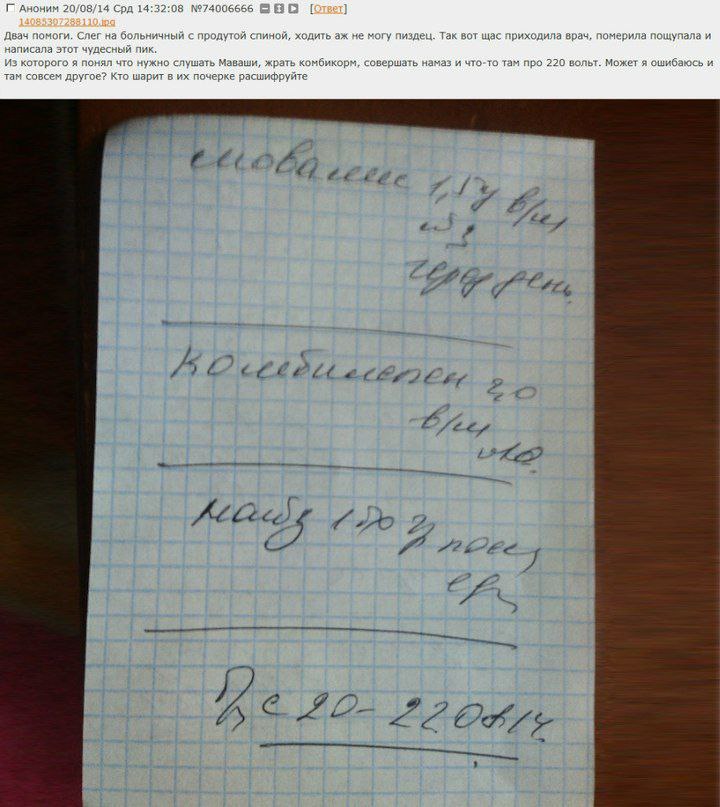 Аноним 20/08/14 Срд 14:32:08 №74006666 [Ответ]
14085307288110.jpg
Двач помоги. Слег на больничный с продутой спиной, ходить аж не могу пиздец. Так вот щас приходила врач, померила пощупала и
написала этот чудесный пик.
Из которого я понял что нужно слушать Маваши, жрать комбикорм, совершать намаз и что-то там про 220 вольт. Может я ошибаюсь и
там совсем другое? Кто шарит в их почерке расшифруйте
мовалис 1,5 в/м
№3
через день.
Комбилипен 2,0
в/м
№10.
150
с 20-22